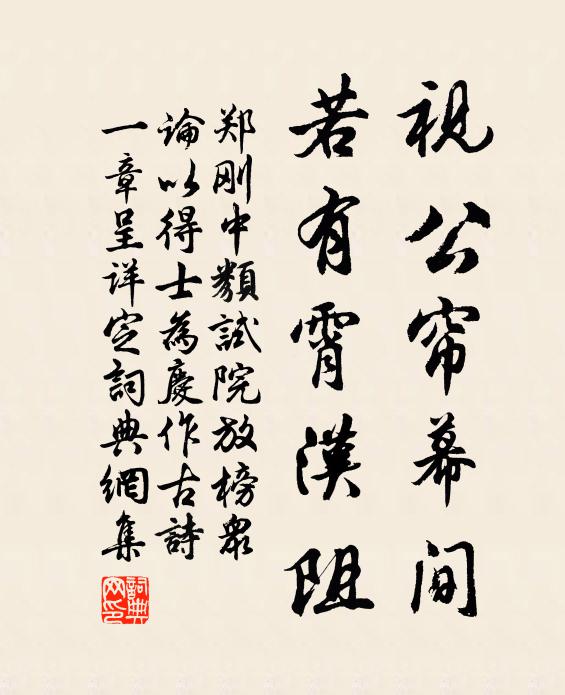 視公帘幕间
若有霄漢阻
郑刚中類試院放榜衆
論以得士為慶作古詩
一章呈详定詞典網集